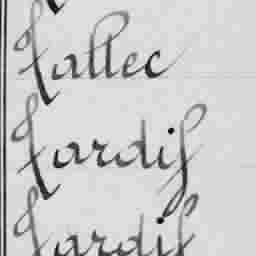 Tallec
Tardif
Tardif